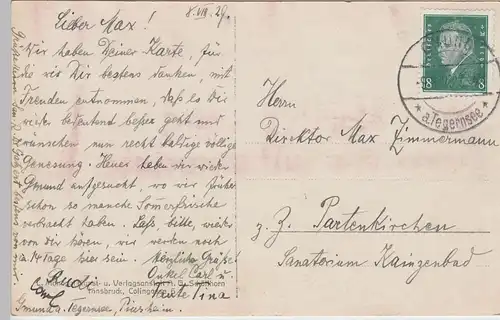 Lieber Max!
8.VIII.29.
Wir haben Deiner Karte, für
die wir Dir bestens danken, mit
Freuden entnommen, daß es Dir
wieder bedeutend besser geht und
wünschen nun recht baldige völlige
Genesung. Heuer haben wir wieder
Gmund aufgesucht, wo wir früher
schon so manche Sommerfrische
verbracht haben. Laß, bitte, wieder
von dir hören, wir werden noch
14 Tage hier sein. Herzliche Grüße
Onkel Carl u.
Tante Tina
Rudi
Gmund a. Tegernsee,
u. Verlagsanstalt
Innsbruck,
DEUTSCHES REICH
8 8
GMUND
* a. Tegernsee *
Herrn
Direktor Max Zimmermann
z. Z. Partenkirchen
Sanatorium Kainzenbad